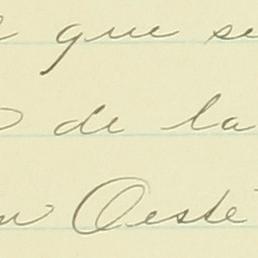 que se
de la
Oeste